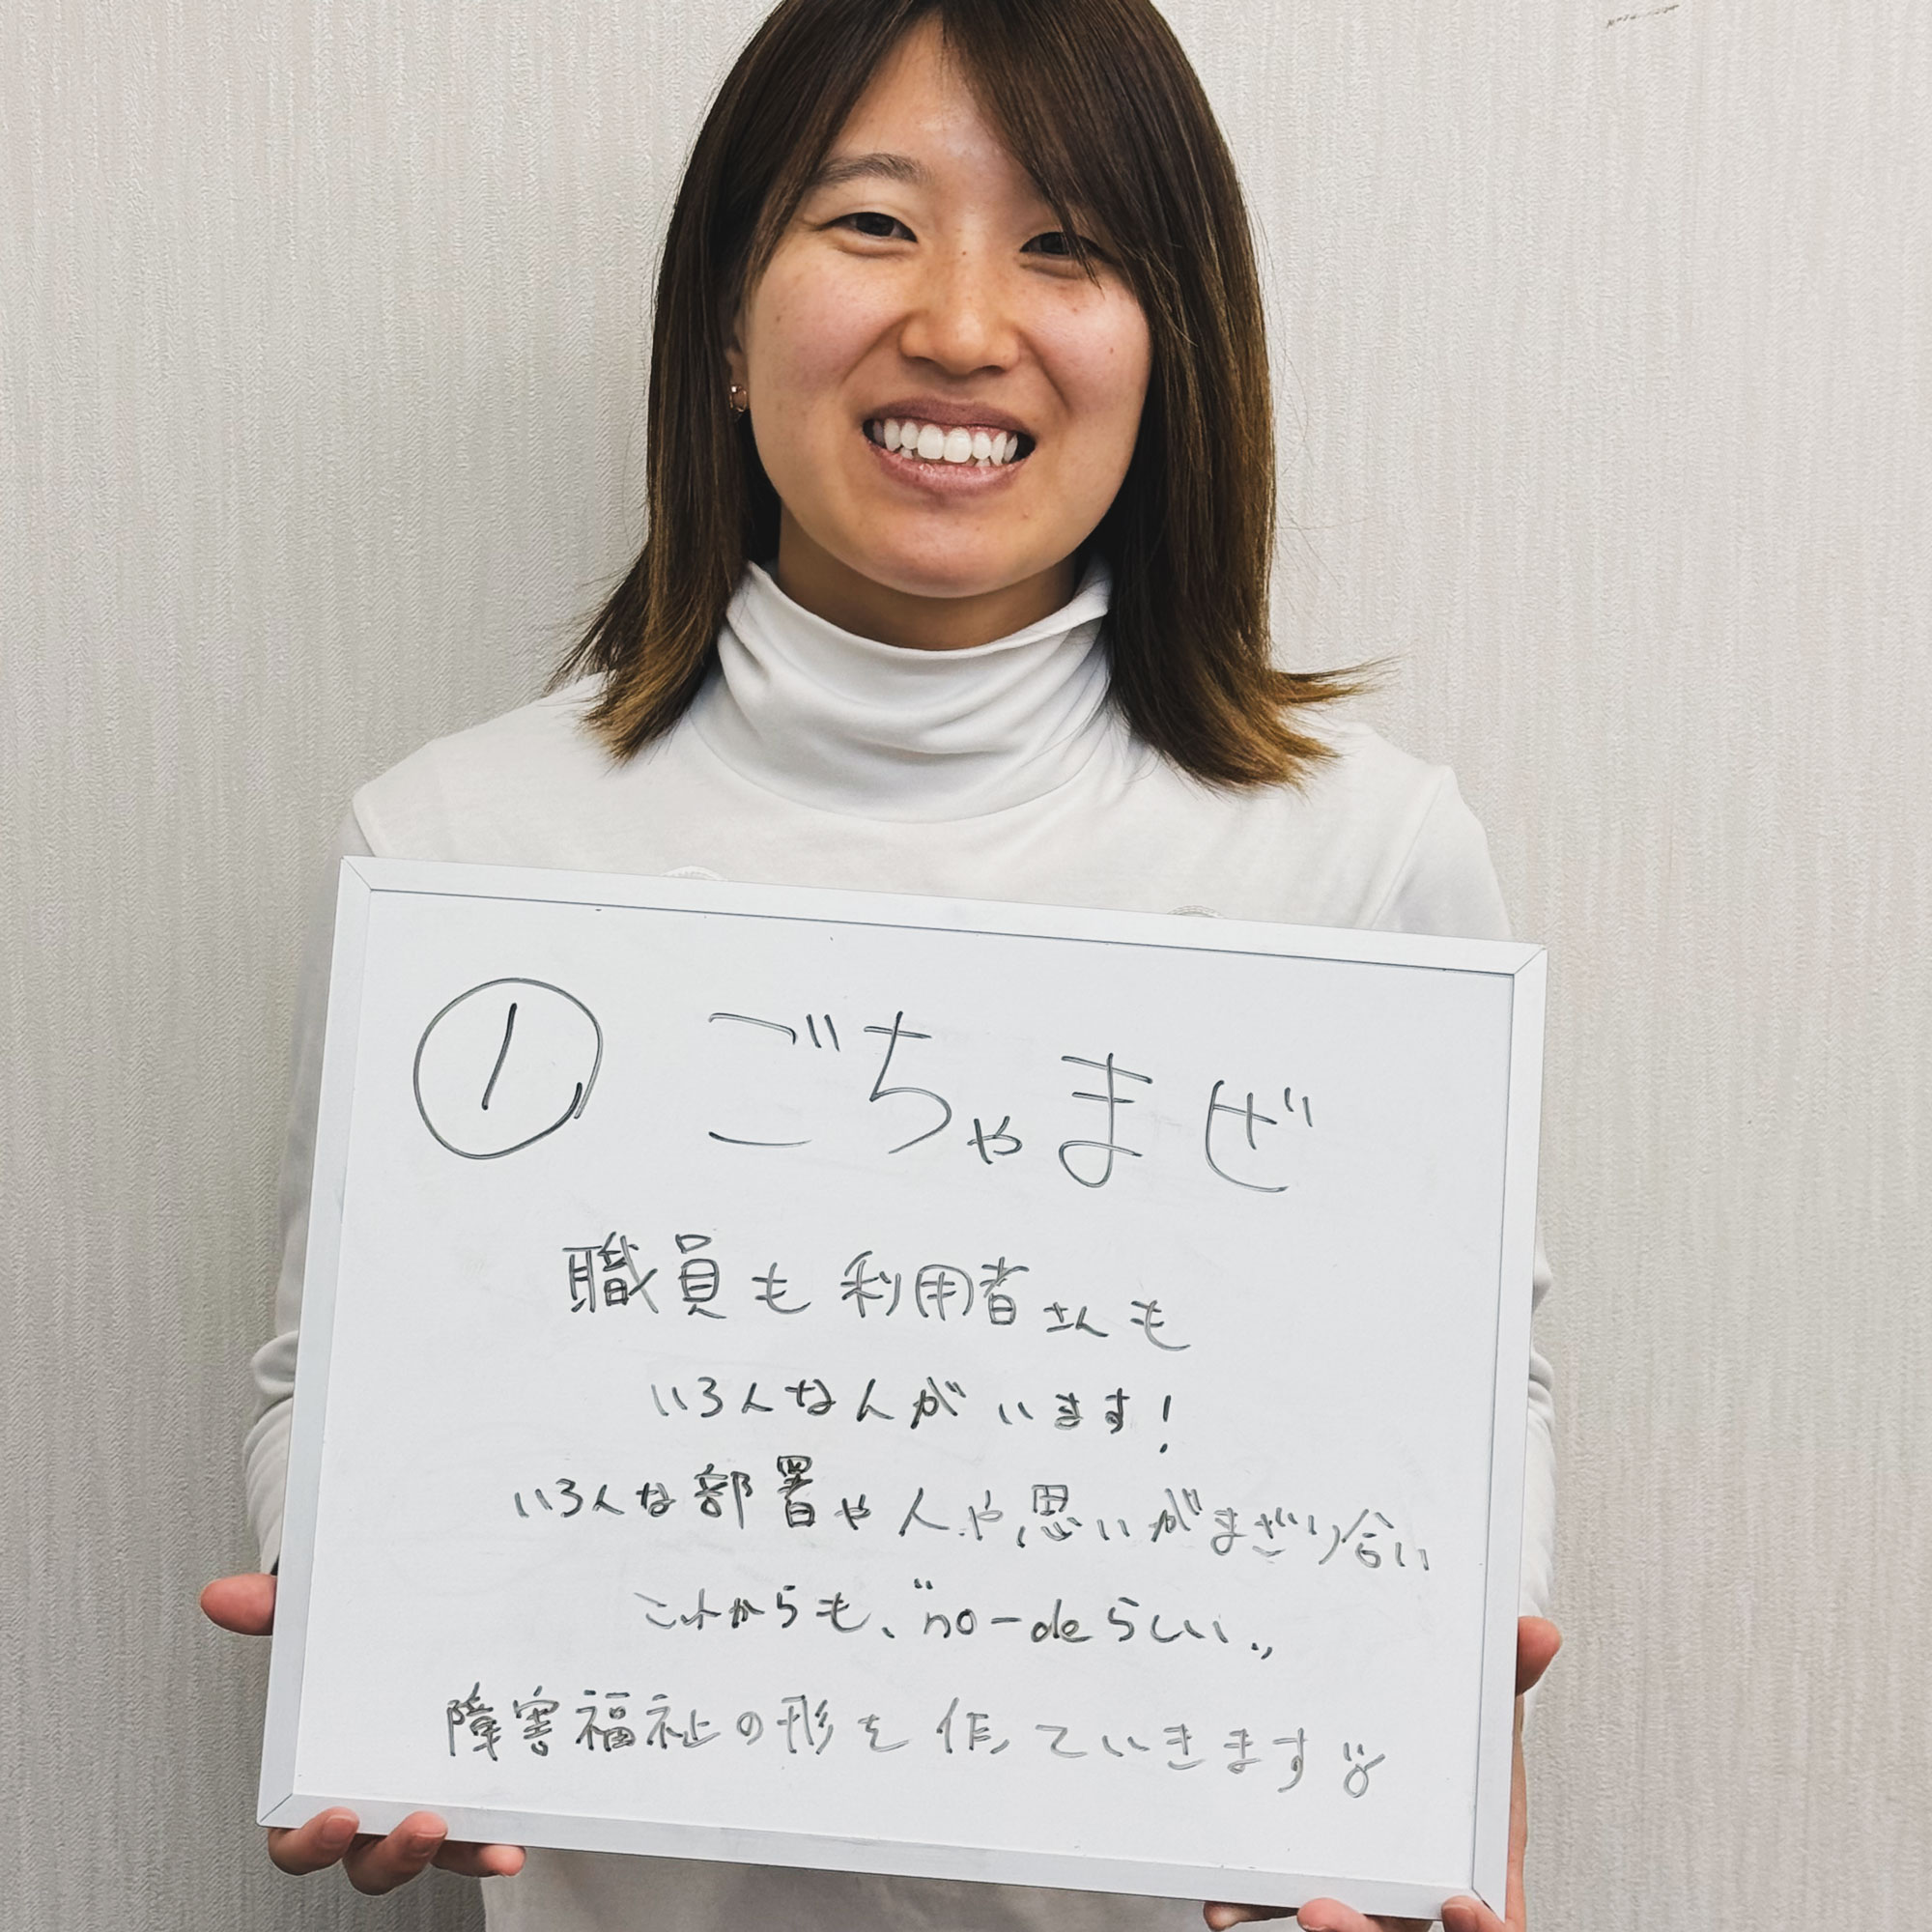 ① ごちゃまぜ
職員も利用者さんも
いろんな人がいます!
いろんな部署や人や思いがまざり合い
これからも、"no-deらしい"
障害福祉の形を作っていきます